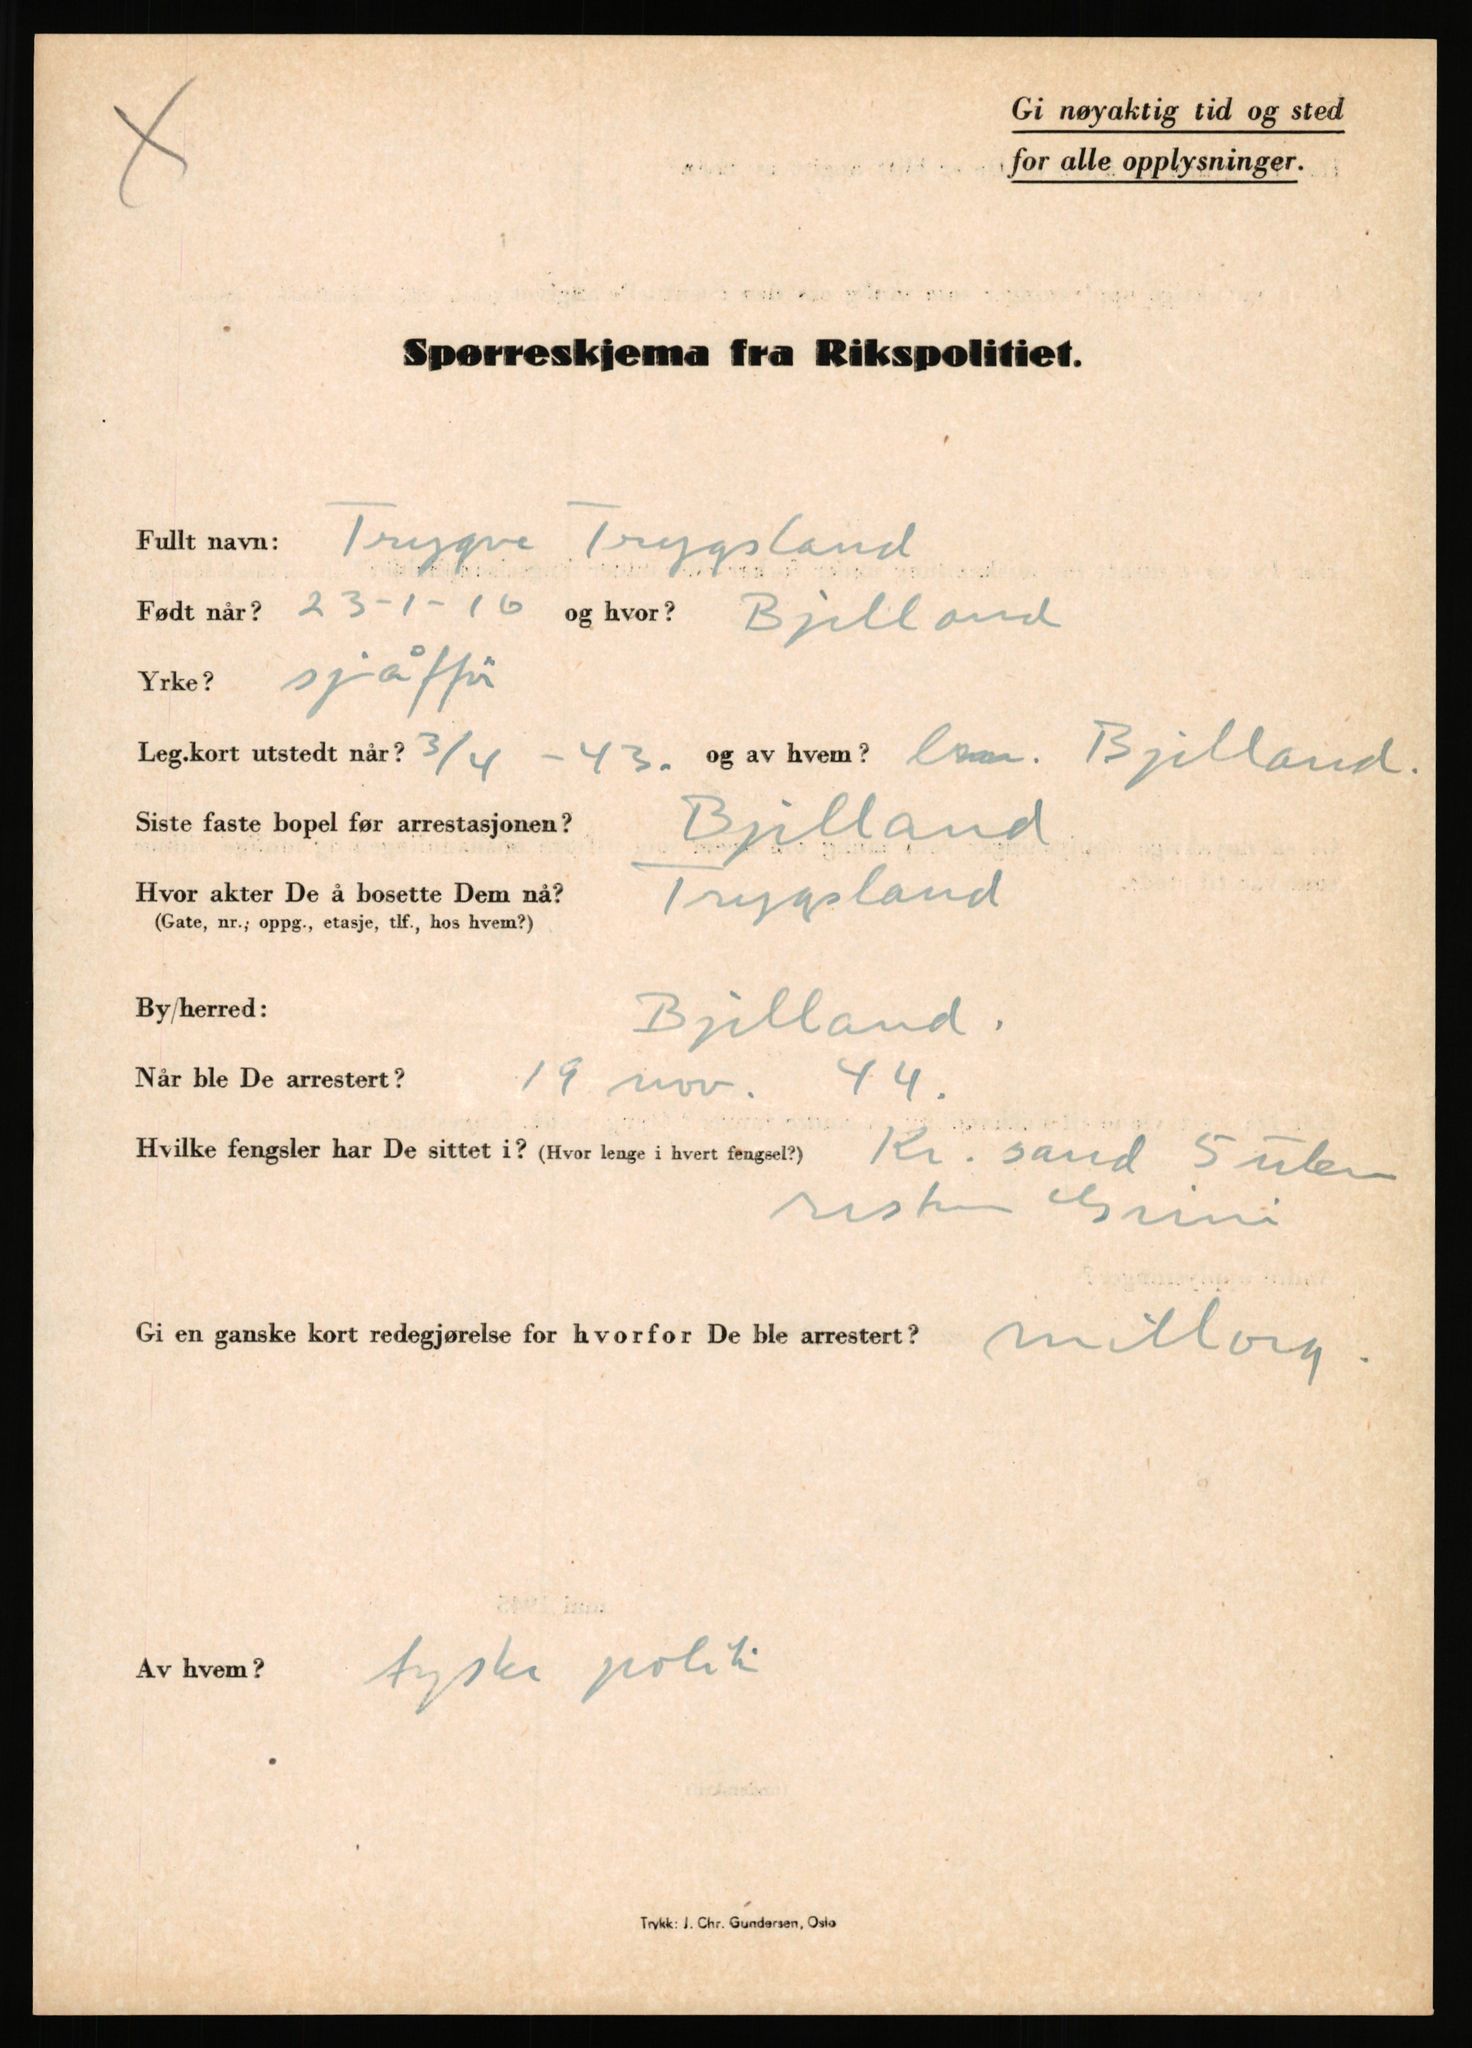 Gi nøyaktig tid og sted
for alle opplysninger.
Spørreskjema fra Rikspolitiet.
Fullt navn: Trygve Trygsland
Født når? 23-1-16 og hvor? Bjelland
Yrke? sjåffør
Leg.kort utstedt når? 3/4 - 43. og av hvem? Bjelland.
Siste faste bopel før arrestasjonen? Bjelland
Hvor akter De å bosette Dem nå? Trygsland
(Gate, nr.; oppg., etasje, tlf., hos hvem?)
By/herred: Bjelland.
Når ble De arrestert? 19 nov. 44.
Hvilke fengsler har De sittet i? (Hvor lenge i hvert fengsel?) Kr. sand 5 uker
resten Grini
Gi en ganske kort redegjørelse for hvorfor De ble arrestert? millorg.
Av hvem? tyske politi
Trykk: J. Chr. Gundersen, Oslo